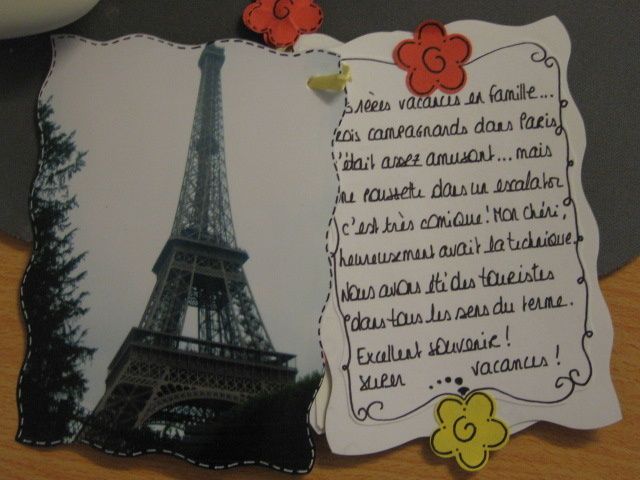 vacances en famille...
campagnards dans Paris
c'était assez amusant... mais
une poussette dans un escalator
c'est très comique! Mon chéri,
heureusement avait la technique.
Nous avons été des touristes
dans tous les sens du terme.
Excellent souvenir!
super ... vacances!